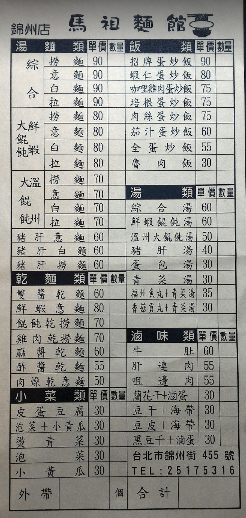 錦州店 馬祖麵館
湯麵類 單價 數量
綜合 撈麵 90
意麵 90
白麵 90
拉麵 90
大鮮餛蝦飩 撈麵 80
意麵 80
白麵 80
拉麵 80
大溫餛州飩 撈麵 70
意麵 70
白麵 70
拉麵 70
豬肝意麵 60
豬肝白麵 60
豬肝撈麵 60
乾麵類 單價 數量
蟹醬乾麵 60
鮮蝦意麵 80
餛飩乾撈麵 70
雞肉乾撈麵 70
麻醬乾麵 50
酢醬乾麵 55
肉燥乾意麵 50
小菜類 單價 數量
皮蛋豆腐 30
泡菜+小黃瓜 30
燙青菜 30
泡菜 30
小黃瓜 30
飯類 單價 數量
招牌蛋炒飯 80
蝦仁蛋炒飯 80
咖哩雞肉蛋炒飯 75
培根蛋炒飯 75
肉絲蛋炒飯 60
茄汁蛋炒飯 60
全蛋炒飯 55
魯肉飯 30
湯類 單價 數量
綜合湯 60
鮮蝦餛飩湯 60
溫州大餛飩湯 50
豬肝湯 40
蛋包湯 30
青菜湯 30
福州魚丸+青菜湯 35
香菇貢丸+青菜湯 30
滷味類 單價 數量
牛肚 60
肝連肉 55
嘴邊肉 55
蘭花干+滷蛋 30
豆干+海帶 30
豆皮+海帶 30
黑豆干+滷蛋 30
台北市錦州街 455 號
TEL:25175316
外帶 個 合計